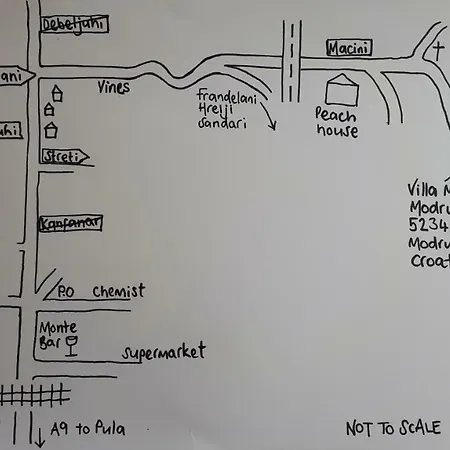 Debeljuhi
ani
Macini
Vines
Frandelani
Hreiji
Sandari
Peach
house
uhi
Streti
Villa M
Modru
5234
Modru
Croat
Kanfanar
P.O
Chemist
Monte
Bar
Supermarket
A9 to Pula
NOT TO SCALE